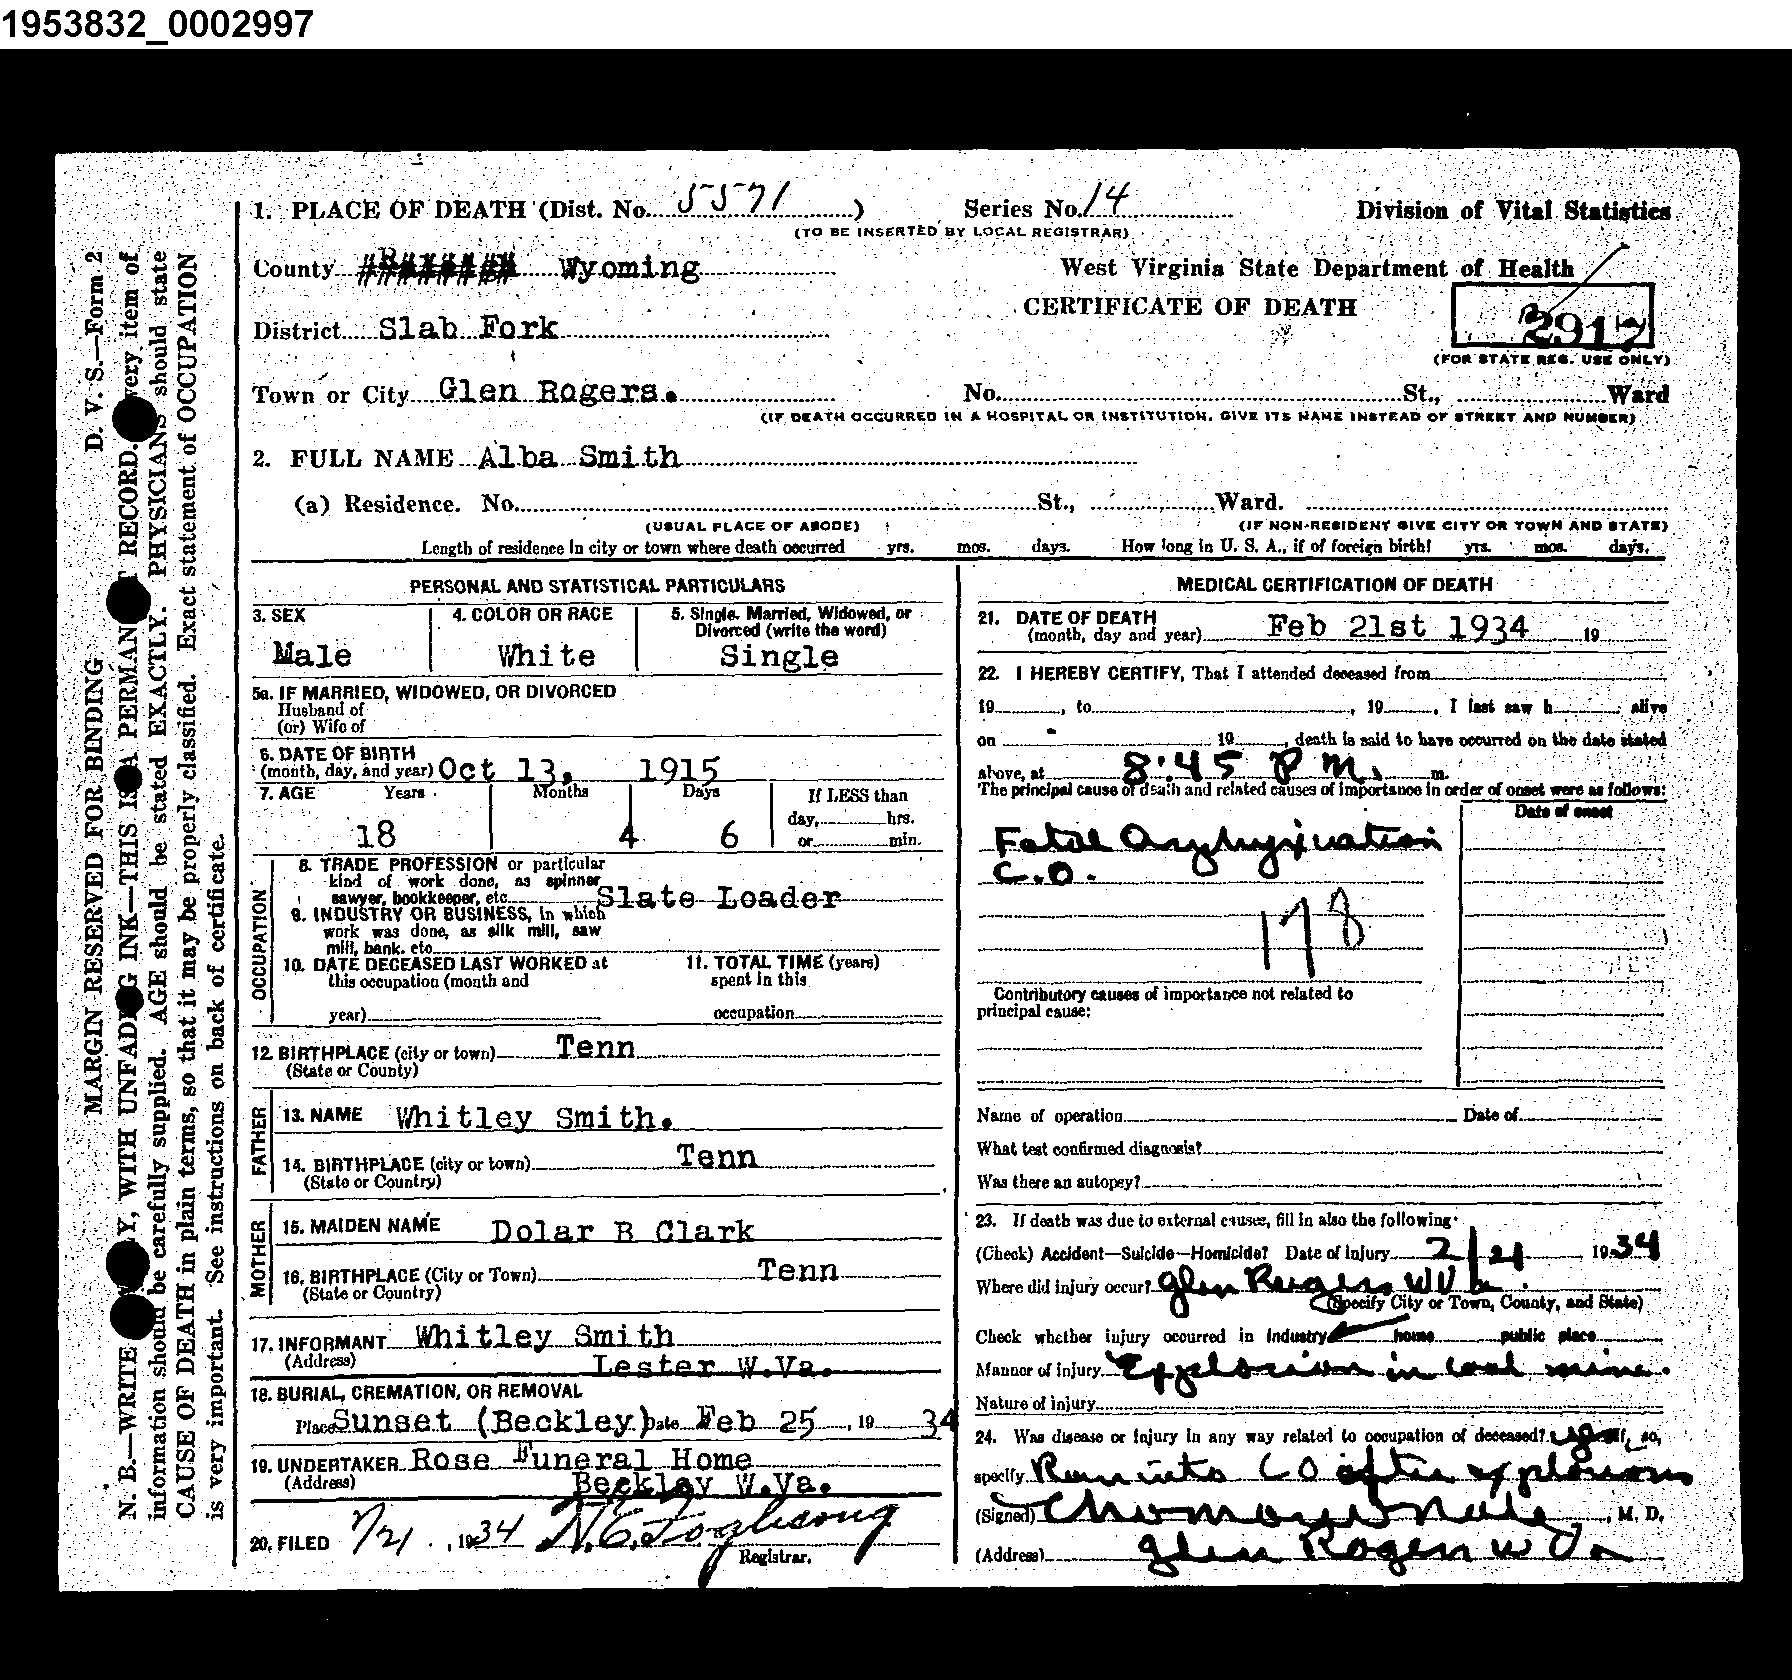 1953832_0002997
1. PLACE OF DEATH (Dist. No. 5571 ) Series No. 14 Division of Vital Statistics
(TO BE INSERTED BY LOCAL REGISTRAR)
County Wyoming West Virginia State Department of Health
CERTIFICATE OF DEATH
District Slab Fork 2917
(FOR STATE REG. USE ONLY)
Town or City Glen Rogers. No. St., Ward
(IF DEATH OCCURRED IN A HOSPITAL OR INSTITUTION, GIVE ITS NAME INSTEAD OF STREET AND NUMBER)
2. FULL NAME Alba Smith
(a) Residence. No. St., Ward.
(USUAL PLACE OF ABODE) (IF NON-RESIDENT GIVE CITY OR TOWN AND STATE)
Length of residence in city or town where death occurred yrs. mos. days. How long in U. S. A., if of foreign birth? yrs. mos. days.
PERSONAL AND STATISTICAL PARTICULARS
3. SEX 4. COLOR OR RACE 5. Single, Married, Widowed, or
Divorced (write the word)
Male White Single
5a. IF MARRIED, WIDOWED, OR DIVORCED
Husband of
(or) Wife of
6. DATE OF BIRTH
(month, day, and year) Oct 13, 1915
7. AGE Years Months Days If LESS than
day, hrs.
18 4 6 or min.
OCCUPATION
8. TRADE PROFESSION or particular
kind of work done, as spinner
sawyer, bookkeeper, etc. Slate Loader
9. INDUSTRY OR BUSINESS, in which
work was done, as silk mill, saw
mill, bank. etc.
10. DATE DECEASED LAST WORKED at 11. TOTAL TIME (years)
this occupation (month and spent in this
year) occupation
12. BIRTHPLACE (city or town) Tenn
(State or County)
FATHER
13. NAME Whitley Smith.
14. BIRTHPLACE (city or town) Tenn
(State or Country)
MOTHER
15. MAIDEN NAME Dolar B Clark
16. BIRTHPLACE (City or Town) Tenn
(State or Country)
17. INFORMANT Whitley Smith
(Address) Lester W.Va.
18. BURIAL, CREMATION, OR REMOVAL
Place Sunset (Beckley) Date Feb 25, 19 34
19. UNDERTAKER Rose Funeral Home
(Address) Beckley W.Va.
20. FILED 1934 N.E. Foglesong
Registrar.
MEDICAL CERTIFICATION OF DEATH
21. DATE OF DEATH
(month, day and year) Feb 21st 1934 19
22. I HEREBY CERTIFY, That I attended deceased from
19 , to , 19 , I last saw h alive
on 19 , death is said to have occurred on the date stated
above, at 8:45 P M. m.
The principal cause of death and related causes of importance in order of onset were as follows:
Date of onset
Fatal Asphyxiation
C.O.
178
Contributory causes of importance not related to
principal cause:
Name of operation Date of
What test confirmed diagnosis?
Was there an autopsy?
23. If death was due to external causes, fill in also the following:
(Check) Accident—Suicide—Homicide? Date of Injury 2/21 1934
Where did injury occur? Glen Rogers W Va.
(Specify City or Town, County, and State)
Check whether injury occurred in industry home public place
Manner of injury Explosion in coal mine.
Nature of injury
24. Was disease or injury in any way related to occupation of deceased? yes If, so,
specify Ran into CO after explosions
(Signed) M. D.
(Address) Glen Rogers W Va
MARGIN RESERVED FOR BINDING D. V. S.—Form 2
N. B.—WRITE WITH UNFADING INK—THIS IS A PERMANENT RECORD. Every item of
information should be carefully supplied. AGE should be stated EXACTLY. PHYSICIANS should state
CAUSE OF DEATH in plain terms, so that it may be properly classified. Exact statement of OCCUPATION
is very important. See instructions on back of certificate.